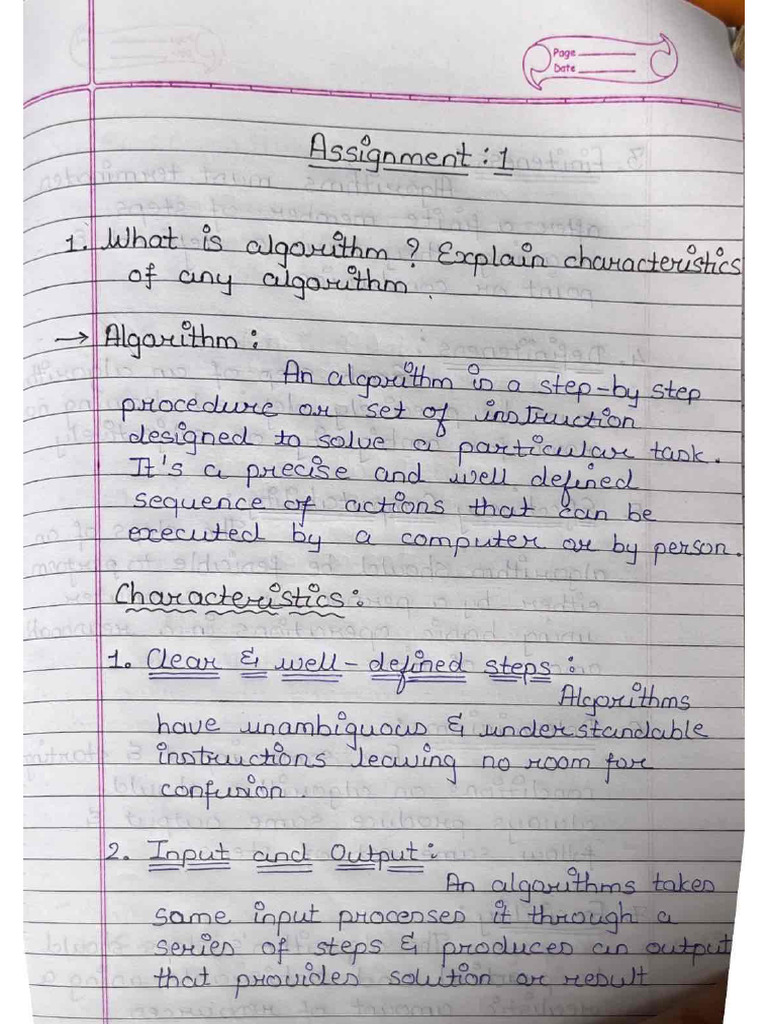 Page
Date
Assignment : 1
1. What is algorithm ? Explain characteristics
of any algorithm.
→ Algorithm :
An algorithm is a step-by step
procedure or set of instruction
designed to solve a particular task.
It's a precise and well defined
sequence of actions that can be
executed by a computer or by person.
Characteristics :
1. Clear & well-defined steps :
Algorithms
have unambiguous & understandable
instructions leaving no room for
confusion
2. Input and Output :
An algorithms takes
some input processes it through a
series of steps & produces an output
that provides solution or result